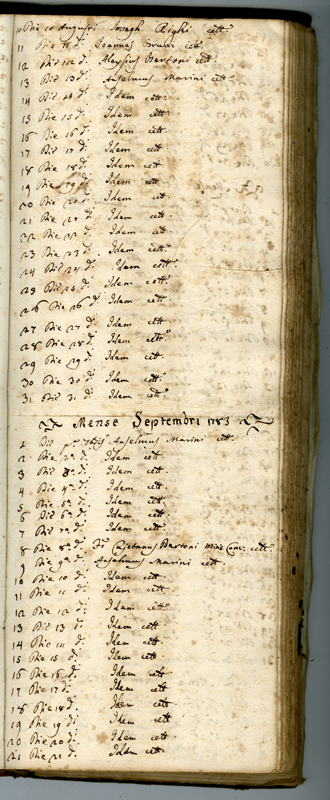 10 Die 10 Augusti Joseph Righi cett.
11 Die 11 d. Joannes cett.
12 Die 12 d. Aloysius Bertoni cett.
13 Die 13 d. Anselmus Marini cett.
14 Die 14 d. Idem cett.
15 Die 15 d. Idem cett.
16 Die 16 d. Idem cett.
17 Die 17 d. Idem cett.
18 Die 18 d. Idem cett.
19 Die 19 d. Idem cett.
20 Die 20 d. Idem cett.
21 Die 21 d. Idem cett.
22 Die 22 d. Idem cett.
23 Die 23 d. Idem cett.
24 Die 24 d. Idem cett.
25 Die 25 d. Idem cett.
26 Die 26 d. Idem cett.
27 Die 27 d. Idem cett.
28 Die 28 d. Idem cett.
29 Die 29 d. Idem cett.
30 Die 30 d. Idem cett.
31 Die 31 d. Idem cett.
Mense Septembri 1783
1 Die 7bris Anselmus Marini cett.
2 Die 2a d. Idem cett.
3 Die 3a d. Idem cett.
4 Die 4a d. Idem cett.
5 Die d. Idem cett.
6 Die 6a d. Idem cett.
7 Die 7a d. Idem cett.
8 Die 8a d. Fr. Cajetanus Bertoni Min. Conv. cett.
9 Die 9a d. Anselmus Marini cett.
10 Die 10 d. Idem cett.
11 Die 11 d. Idem cett.
12 Die 12 d. Idem cett.
13 Die 13 d. Idem cett.
14 Die 14 d. Idem cett.
15 Die 15 d. Idem cett.
16 Die 16 d. Idem cett.
17 Die 17 d. Idem cett.
18 Die 18 d. Idem cett.
19 Die 19 d. Idem cett.
20 Die 20 d. Idem cett.
21 Die 21 d. Idem cett.